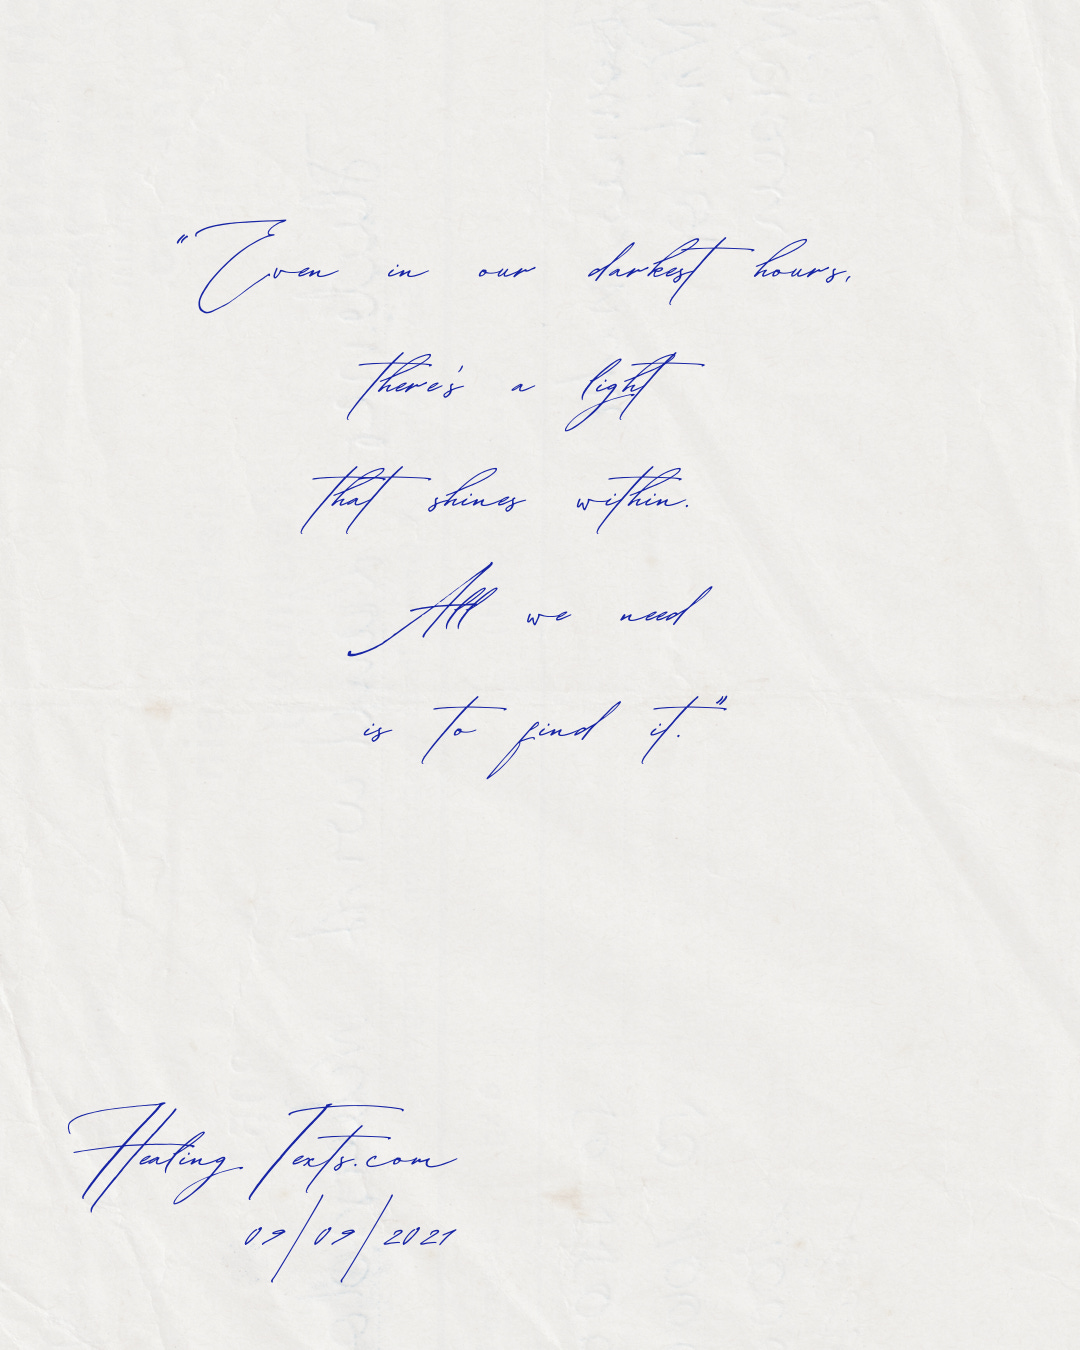 "Even in our darkest hours,
there's a light
that shines within.
All we need
is to find it."
Healing Texts.com
09/09/2021